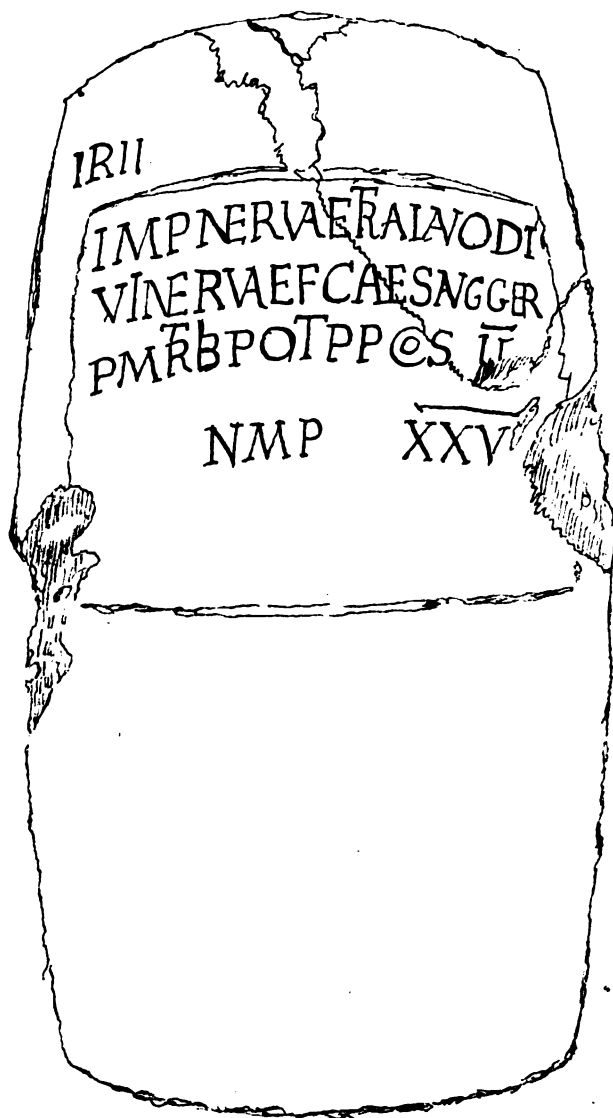 IRII
IMPNERVAETRAIANODI
VINERVAEFCAESAVGGER
PMTRIBPOTPPCOS II
NMP XXV